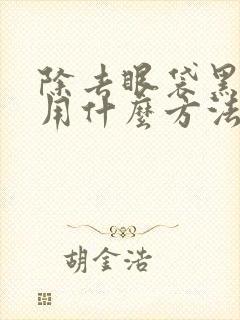 除去眼袋黑
用什麼方法
胡金浩